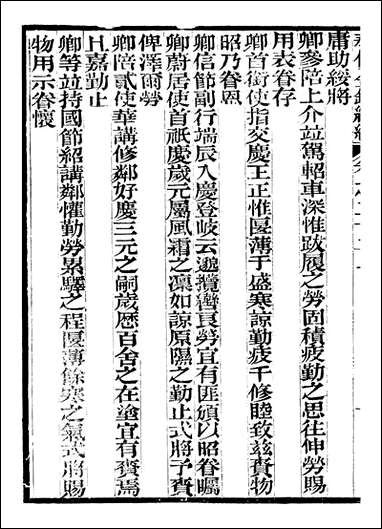 庸助綏將
卿參陪上介竝駕軺車深惟跋履之勞固積疲勤之思往伸勞賜
用表眷存
卿首銜使指交慶王正惟匽薄于盛寒諒勤疲于修睦致茲賚物
昭乃眷恩
卿信節副行端辰入慶登岐云邈攬轡良勞宜有匪頒以昭眷矚
卿蔚居使首祇慶歲元屬風霜之凜如諒原隰之勤止式將予賚
俾澤爾勞
卿陪貳使華講修鄰好慶三元之嗣歲歷百舍之在塗宜有賚焉
且嘉勤止
卿等竝持國節紹講鄰懽勤勞累驛之程匽薄餘寒之氣式將賜
物用示眷懷